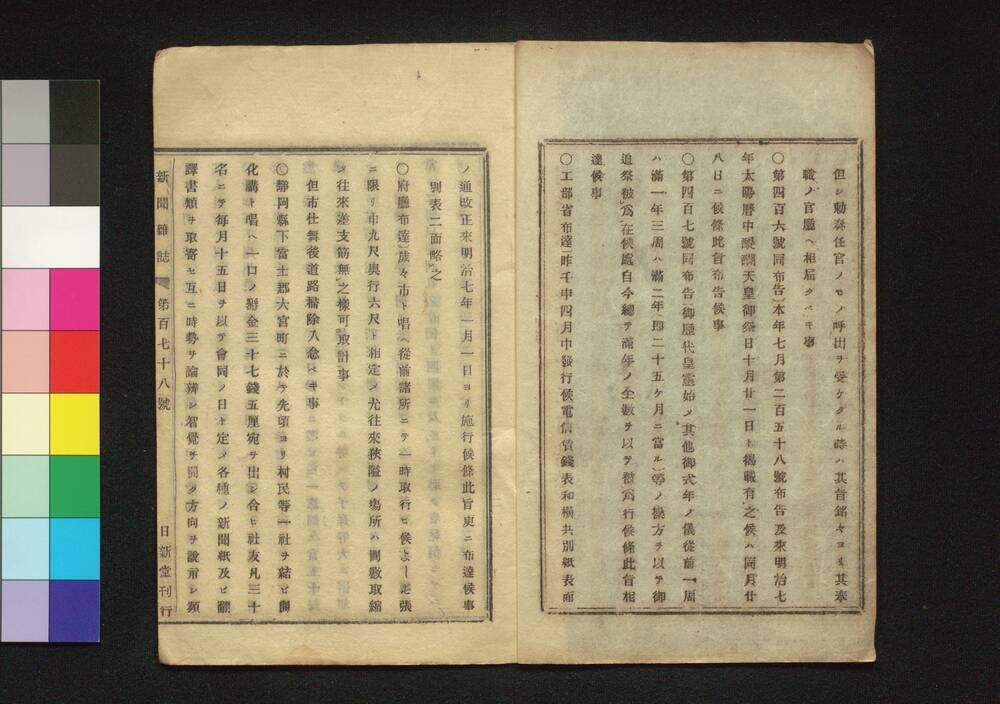 但シ勅奏任官ノモノ呼出ヲ受ケタル時ハ其旨銘々ヨリ其奉
職ノ官廳ヘ相届クベキ事
〇第四百六號同布告〕本年七月第二百五十八號布告及來明治七
年太陽暦中醍醐天皇御祭日十月廿一日ト掲載有之候ハ同月廿
八日ニ候條此旨布告候事
〇第四百七號同布告御歴代皇靈始メ其他御式年ノ儀從前一周
ハ滿一年三周ハ滿二年即二十五ケ月ニ當ル〕等ノ換方ヲ以テ御
追祭被爲在候處自今總テ滿年ノ全數ヲ以テ被爲行候條此旨相
達候事
〇工部省布達昨壬申四月中發行候電信賃錢表和横共別紙表面
ノ通改正來明治七年一月一日ヨリ施行候條此旨更ニ布達候事
別表二面略之
〇府廳布達〕歳々市ト唱ヘ從前諸所ニテ一時取行ヒ候
ニ限リ巾九尺奥行六尺ト相定メ尤往來狹隘ノ場所ハ間數取縮
メ往來差支筋無之樣可取計事
但市仕舞後道路掃除入念ベキ事
〇靜岡縣下富士郡大宮町ニ於テ先頃ヨリ村民等一社ヲ結ビ開
化講ト唱ヘ一口ノ掛金三十七錢五厘宛ヲ出シ合ヒ社友凡三十
名ニテ毎月十五日ヲ以テ會同ノ日ト定メ各種ノ新聞紙及ビ飜
譯書類ヲ取寄セ互ニ時勢ヲ論辨シ智覺ヲ開ク方向ヲ説示シ頗
新聞雜誌 第百七十八號 日新堂刊行